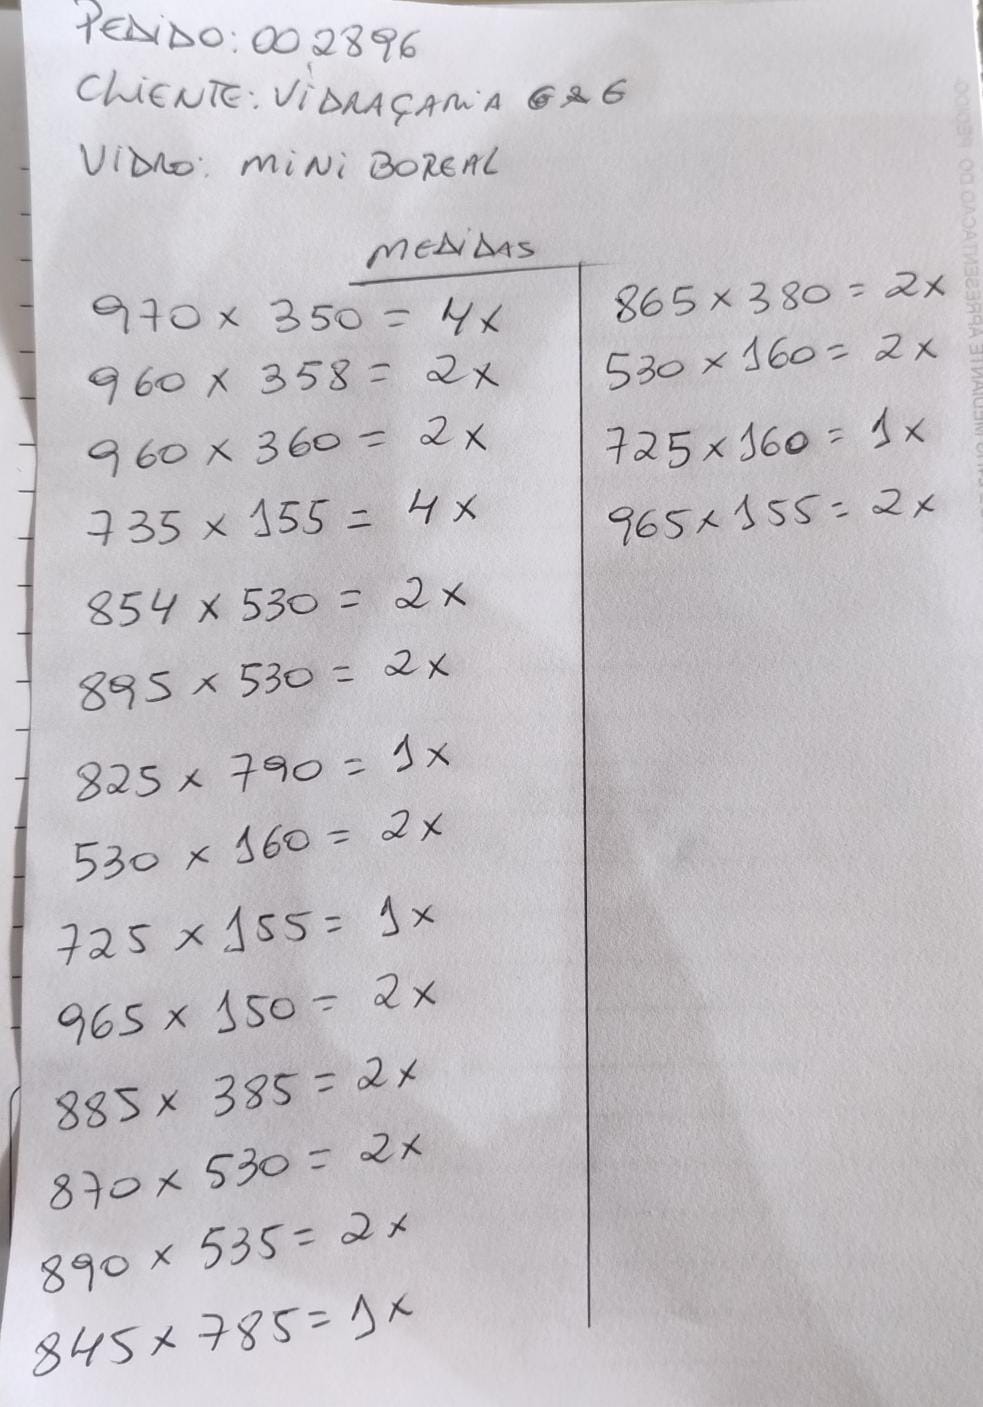 PEDIDO: 002896
CLIENTE: VIDRAÇARIA G&G
VIDRO: MINI BOREAL
MEDIDAS
970 x 350 = 4x
960 x 358 = 2x
960 x 360 = 2x
735 x 155 = 4x
854 x 530 = 2x
895 x 530 = 2x
825 x 790 = 1x
530 x 160 = 2x
725 x 155 = 1x
965 x 150 = 2x
885 x 385 = 2x
870 x 530 = 2x
890 x 535 = 2x
845 x 785 = 1x
865 x 380 = 2x
530 x 160 = 2x
725 x 160 = 1x
965 x 155 = 2x
MEDIANTE APRESENTAÇÃO DO PEDIDO